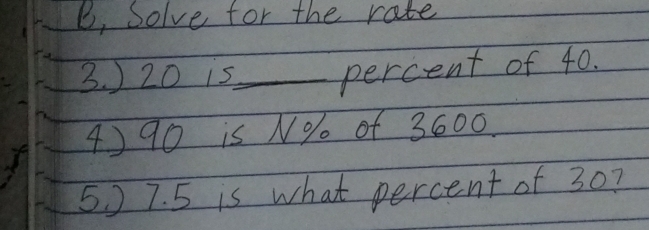 B, Solve for the rate
3.) 20 is____ percent of 40.
4) 90 is N% of 3600.
5.) 7.5 is what percent of 30?